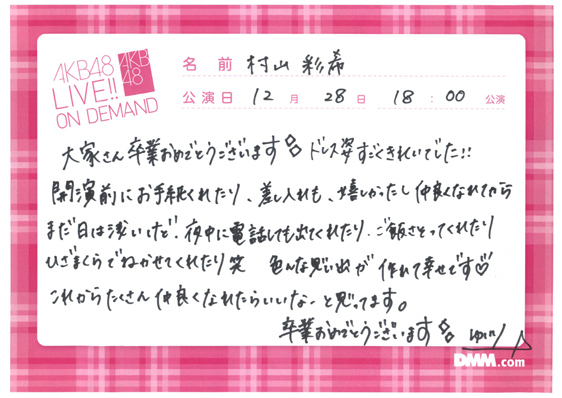 AKB48
LIVE!!
ON DEMAND
AKB
48
名前 村山彩希
公演日 12月 28日 18:00 公演
大家さん卒業おめでとうございます ドレス姿すごくきれいでした!!
開演前にお手紙くれたり、差し入れも、嬉しかったし仲良くなれてから
まだ日は浅いけど、夜中に電話しても出てくれたり、ご飯さそってくれたり
ひざまくらでねかせてくれたり笑 色んな思い出が作れて幸せです♡
これからたくさん仲良くなれたらいいなーと思ってます。
卒業おめでとうございます
DMM.com